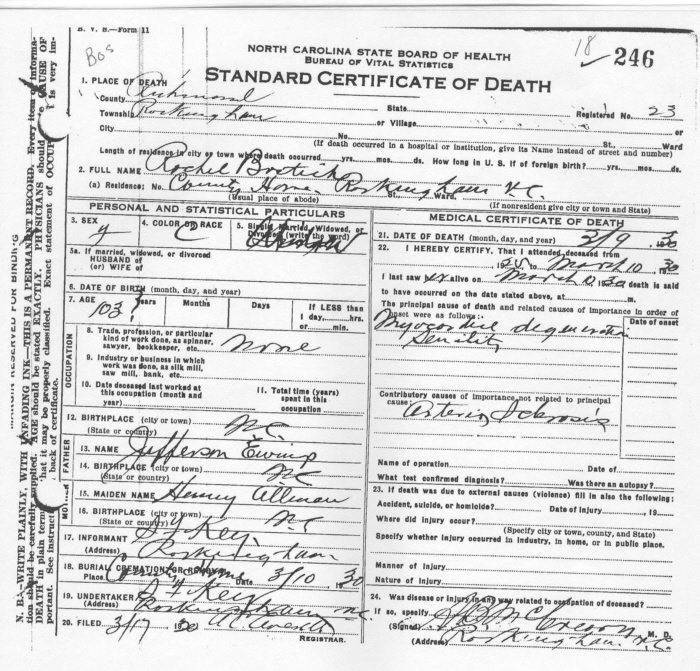 B. V. S.—Form 11
Bos
18 ✓ 246
NORTH CAROLINA STATE BOARD OF HEALTH
BUREAU OF VITAL STATISTICS
STANDARD CERTIFICATE OF DEATH
1. PLACE OF DEATH
County Richmond State Registered No. 23
Township Rockingham or Village or
City No. St., Ward
(If death occurred in a hospital or institution, give its Name instead of street and number)
Length of residence in city or town where death occurred yrs. mos. ds. How long in U. S. if of foreign birth? yrs. mos. ds.
2. FULL NAME Rachel
(a) Residence: No. County Home Rockingham N.C. St. Ward.
(Usual place of abode) (If nonresident give city or town and State)
PERSONAL AND STATISTICAL PARTICULARS
3. SEX
4. COLOR OR RACE C
5. Single, Married, Widowed, or Divorced (write the word)
5a. If married, widowed, or divorced
HUSBAND of
(or) WIFE of
6. DATE OF BIRTH (month, day, and year)
7. AGE 103 Years Months Days If LESS than
1 day, hrs.
or min.
OCCUPATION
8. Trade, profession, or particular
kind of work done, as spinner,
sawyer, bookkeeper, etc. None
9. Industry or business in which
work was done, as silk mill,
saw mill, bank, etc.
10. Date deceased last worked at
this occupation (month and
year)
11. Total time (years)
spent in this
occupation
12. BIRTHPLACE (city or town) NC
(State or country)
FATHER
13. NAME Jefferson Ewing
14. BIRTHPLACE (city or town) NC
(State or country)
MOTHER
15. MAIDEN NAME Allman
16. BIRTHPLACE (city or town) NC
(State or country)
17. INFORMANT Key
(Address) Rockingham
18. BURIAL, CREMATION OR REMOVAL
Place County Home Date 3/10 1930
19. UNDERTAKER Key
(Address) Rockingham NC.
20. FILED 3/17 1930
REGISTRAR.
MEDICAL CERTIFICATE OF DEATH
21. DATE OF DEATH (month, day, and year) 3/9 1930
22. I HEREBY CERTIFY, That I attended deceased from
to March 10 1930
I last saw alive on March 1930 death is said
to have occurred on the date stated above, at m.
The principal cause of death and related causes of importance in order of
onset were as follows: Date of onset
Myocardial degeneration
Senility
Contributory causes of importance not related to principal
cause:
Arterio Sclerosis
Name of operation Date of
What test confirmed diagnosis? Was there an autopsy?
23. If death was due to external causes (violence) fill in also the following:
Accident, suicide, or homicide? Date of injury , 19
Where did injury occur?
(Specify city or town, county, and State)
Specify whether injury occurred in industry, in home, or in public place.
Manner of injury
Nature of injury
24. Was disease or injury in any way related to occupation of deceased?
If so, specify
(Signed) M. D.
(Address) Rockingham N.C.
MARGIN RESERVED FOR BINDING
N. B.—WRITE PLAINLY, WITH UNFADING INK—THIS IS A PERMANENT RECORD. Every item of informa-
tion should be carefully supplied. AGE should be stated EXACTLY. PHYSICIANS should CAUSE OF
DEATH in plain term that it may be properly classified. Exact statement of OCCUP is very im-
portant. See instruct back of certificate.